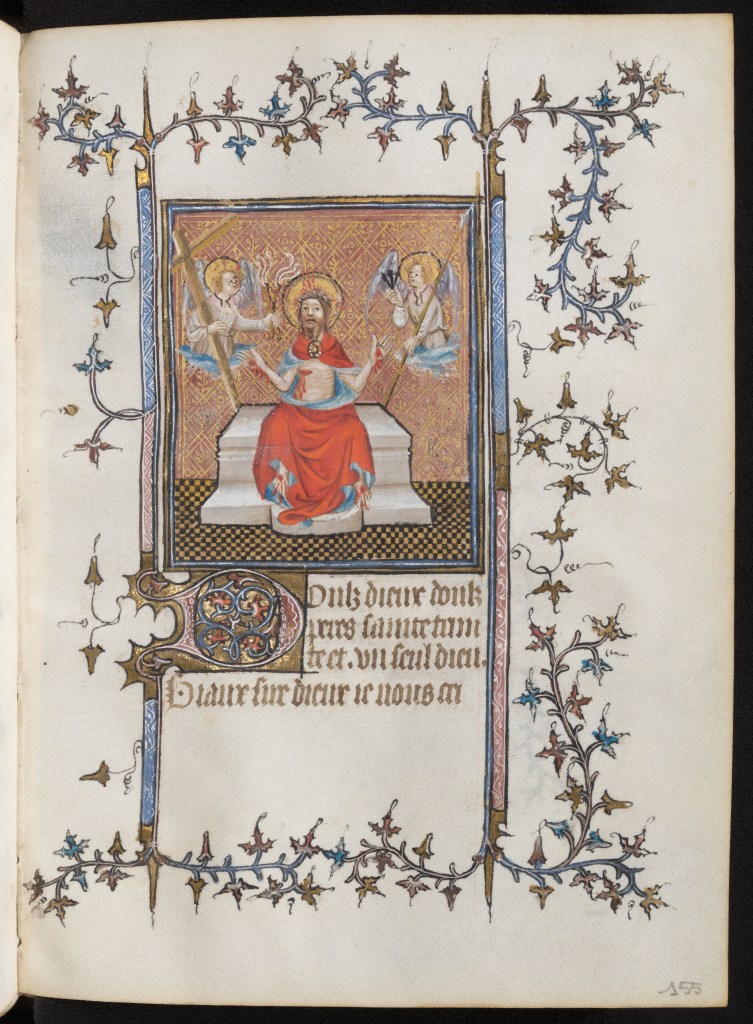 Doulz dieux doulz
peres sainte trini
te et .vn seul dieu.
Biaux sire dieux ie vous re
155